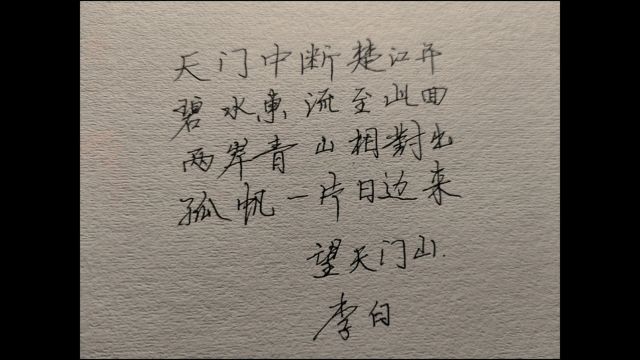 天门中断楚江开
碧水東流至此回
两岸青山相對出
孤帆一片日边来
望天门山.
李白